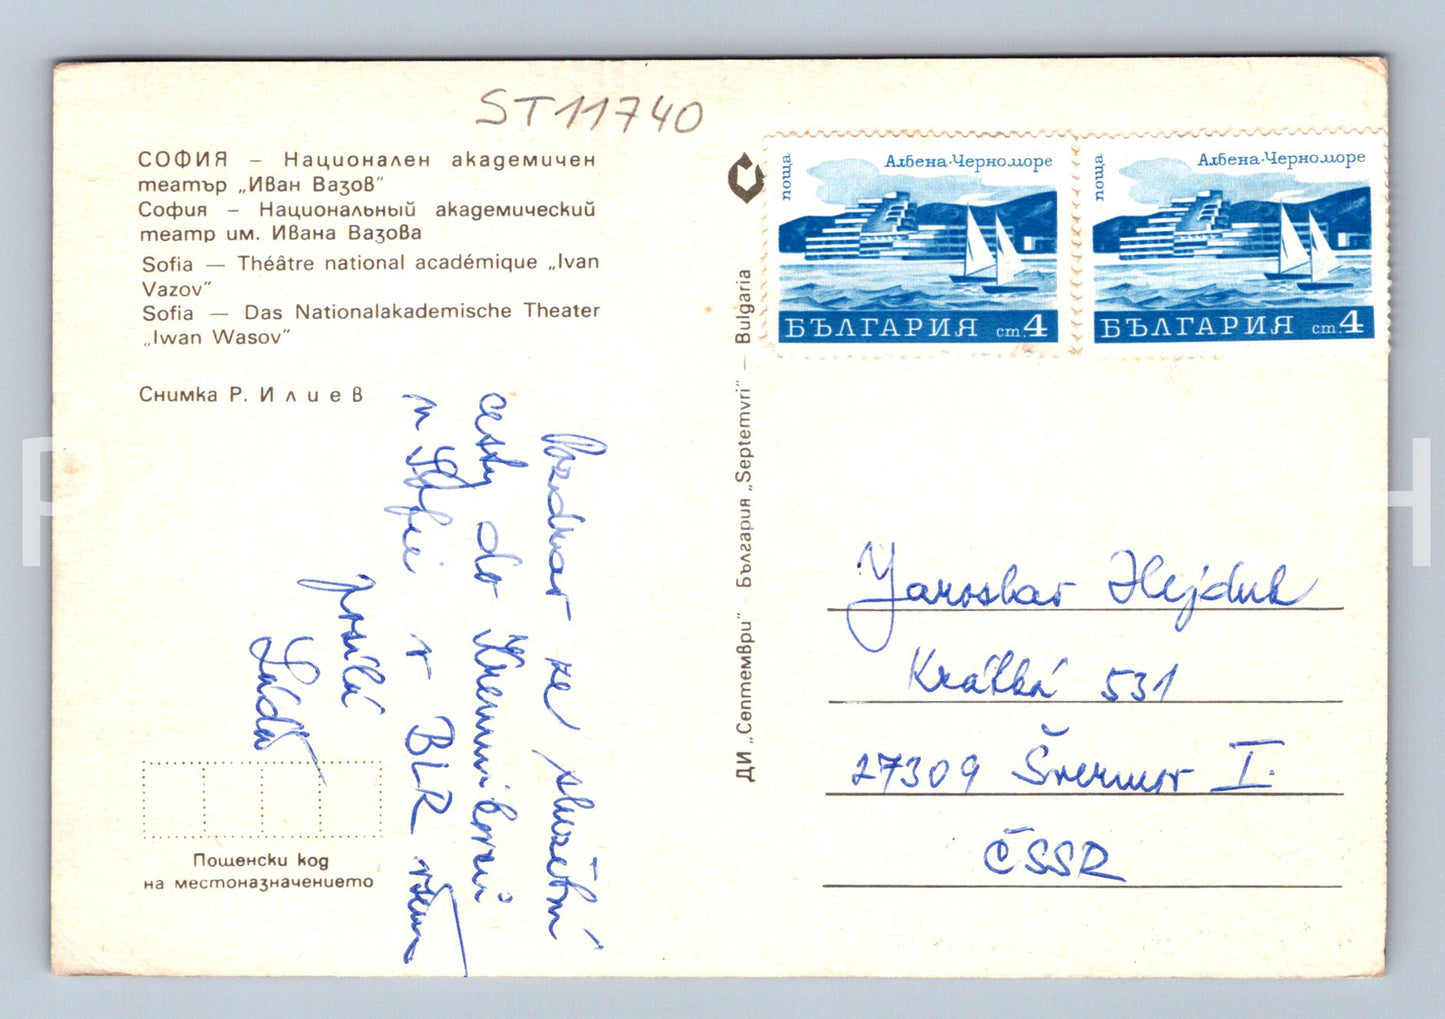 ST11740
СОФИЯ – Национален академичен
театър „Иван Вазов“
София – Национальный академический
театр им. Ивана Вазова
Sofia — Théâtre national académique „Ivan
Vazov“
Sofia — Das Nationalakademische Theater
„Iwan Wasov“
Снимка Р. Илиев
Pozdrav ze služební
cesty do
v Sofii v BLR všem
posílá
Láďa
Пощенски код
на местоназначението
ДИ „Септември“ – България „Septemvri“ — Bulgaria
поща
Албена·Черноморе
БЪЛГАРИЯ ст 4
поща
Албена·Черноморе
БЪЛГАРИЯ ст 4
Jaroslav Hejduk
Krátká 531
27309 Švermov I.
ČSSR